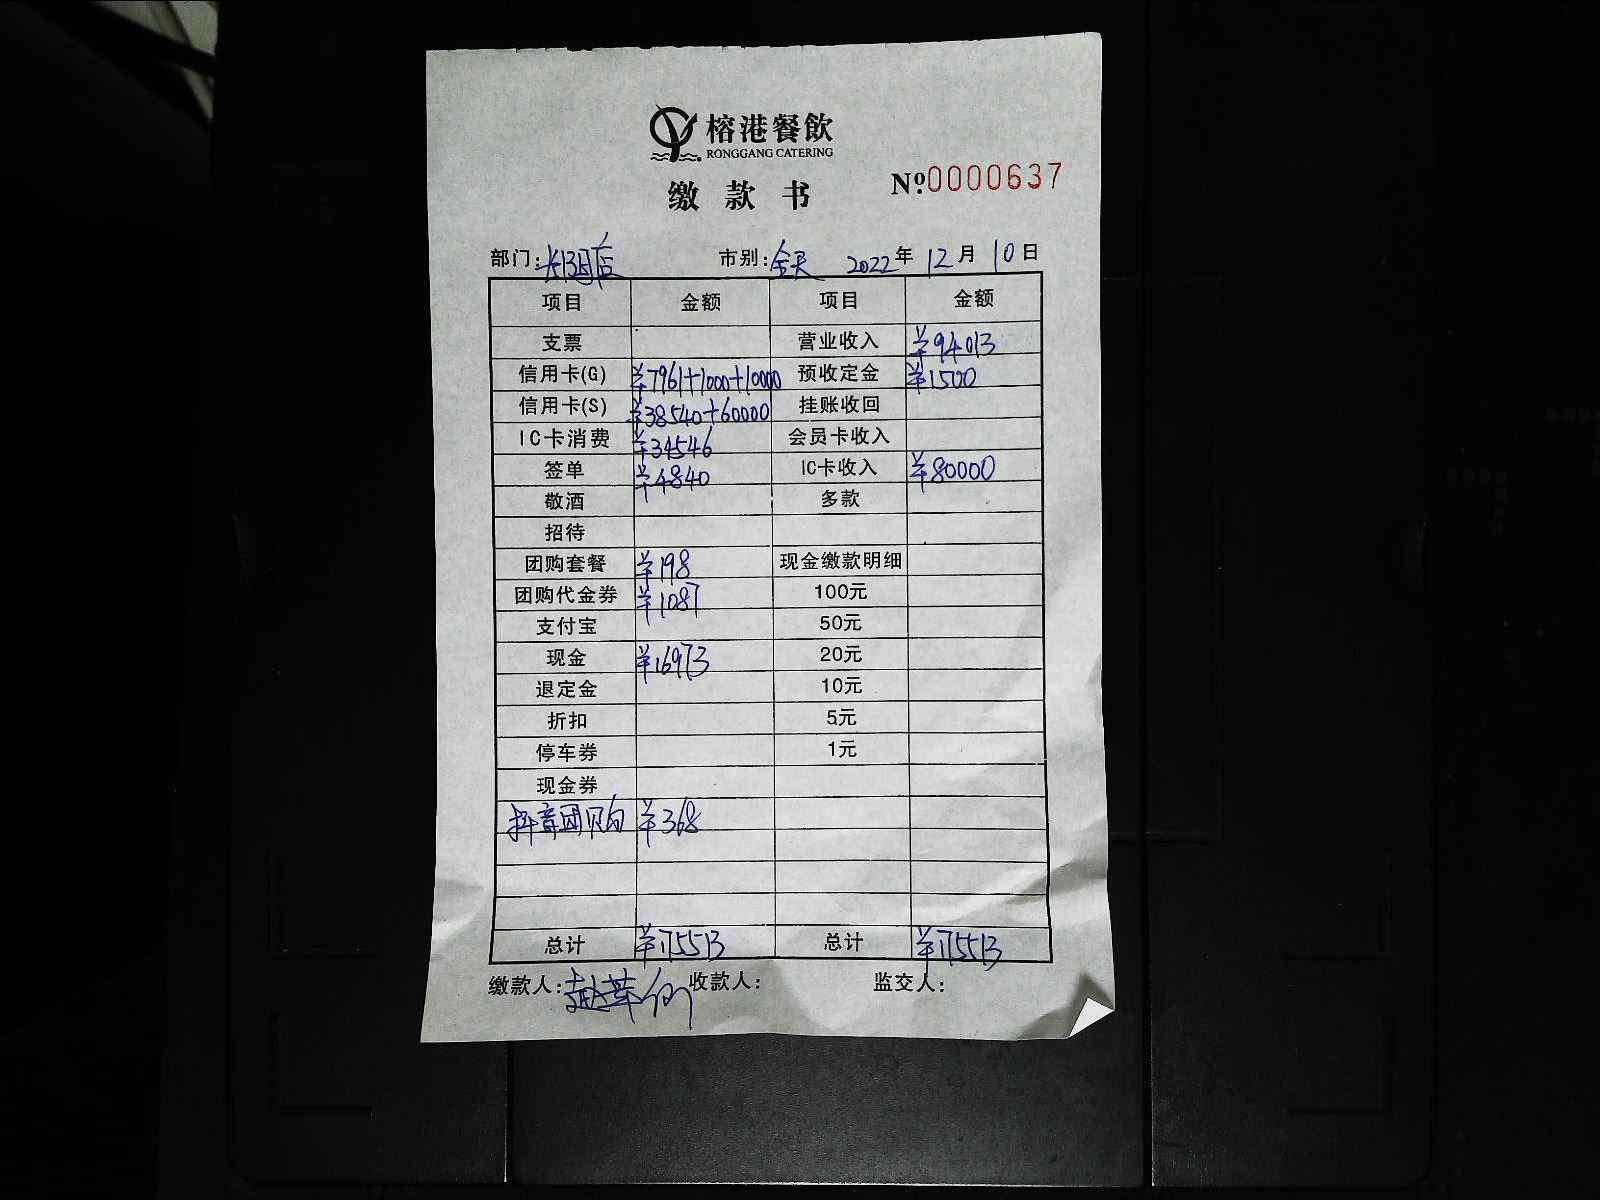 榕港餐飲
RONGGANG CATERING
缴款书 Nº.0000637
部门: 市别:全天 2022年12月10日
项目 金额 项目 金额
支票 营业收入 ¥94013
信用卡(G) ¥7961+1000+10000 预收定金 ¥1500
信用卡(S) ¥38540+60000 挂账收回
IC卡消费 ¥34546 会员卡收入
签单 ¥4840 IC卡收入 ¥80000
敬酒 多款
招待
团购套餐 ¥198 现金缴款明细
团购代金券 ¥1087 100元
支付宝 50元
现金 ¥16973 20元
退定金 10元
折扣 5元
停车券 1元
现金券
抖音团购 ¥368
总计 ¥175513 总计 ¥175513
缴款人: 收款人: 监交人: